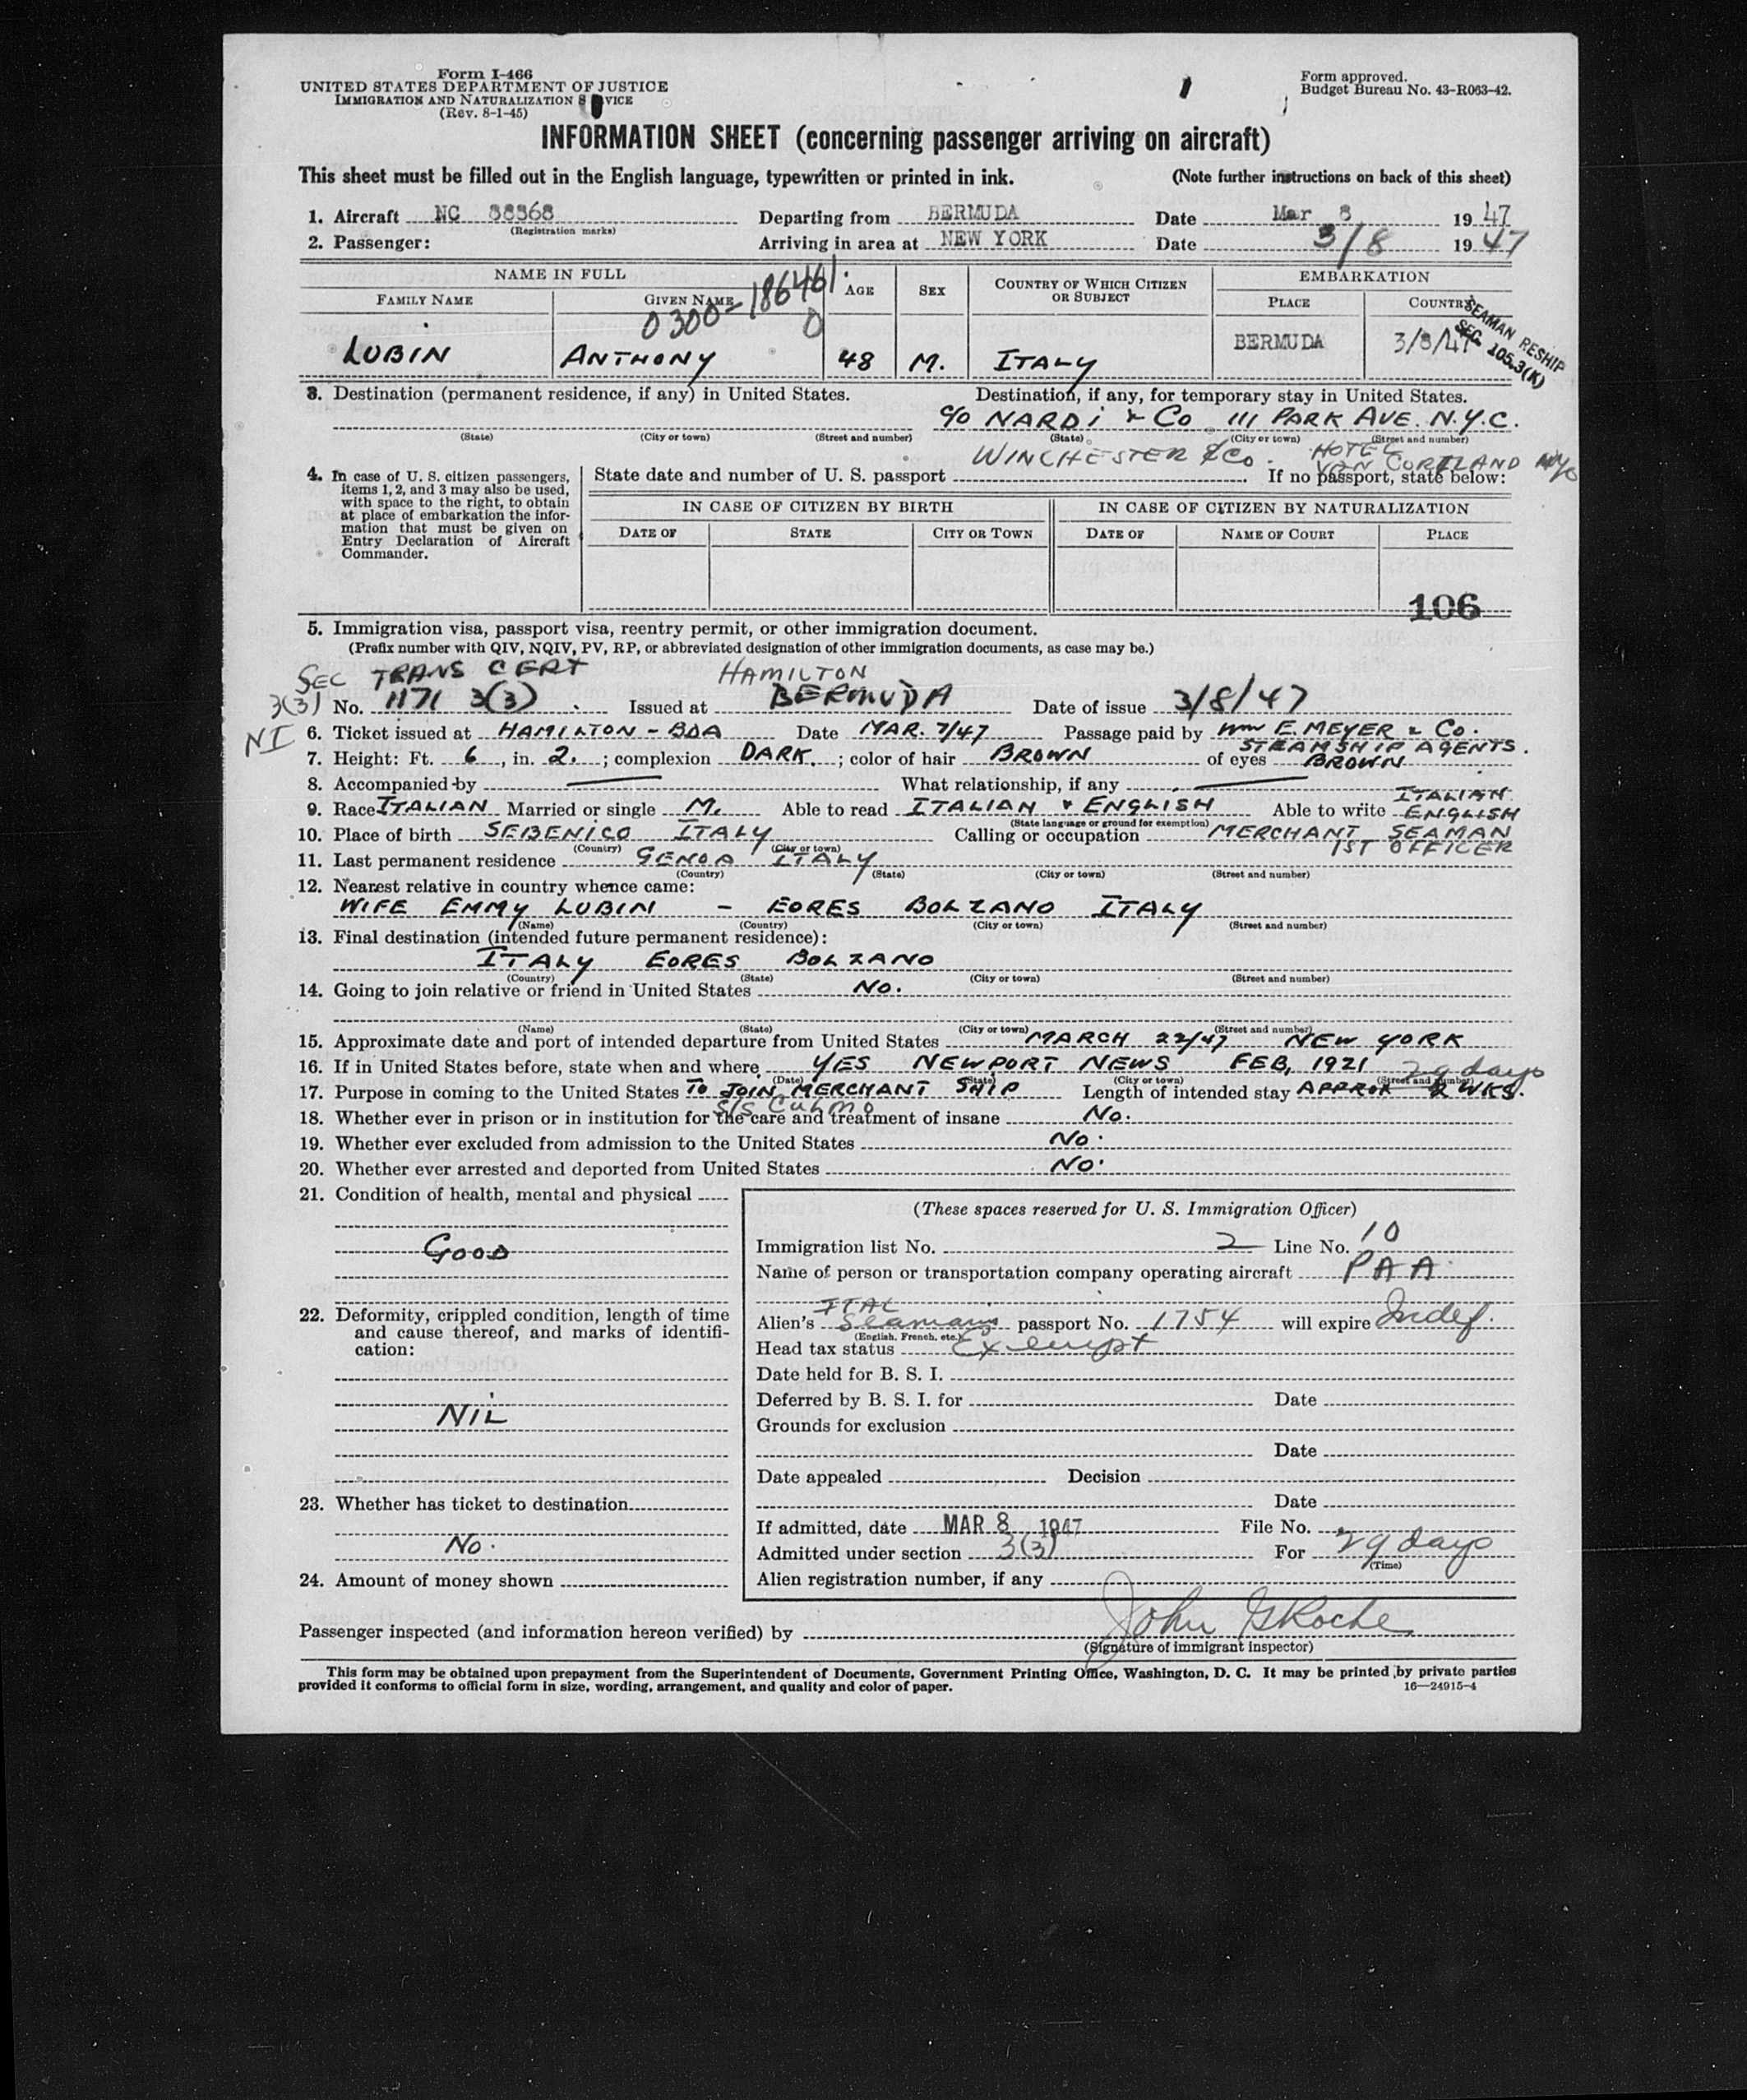 Form I-466
UNITED STATES DEPARTMENT OF JUSTICE
IMMIGRATION AND NATURALIZATION S VICE
(Rev. 8-1-45)
Form approved.
Budget Bureau No. 43-R063-42.
INFORMATION SHEET (concerning passenger arriving on aircraft)
This sheet must be filled out in the English language, typewritten or printed in ink. (Note further instructions on back of this sheet)
1. Aircraft NC Departing from BERMUDA Date Mar 8 1947
(Registration marks)
2. Passenger: Arriving in area at NEW YORK Date 3/8 1947
NAME IN FULL AGE SEX COUNTRY OF WHICH CITIZEN OR SUBJECT EMBARKATION
FAMILY NAME GIVEN NAME PLACE COUNTRY
0300-186461
0
SEAMAN RESHIP
SEC. 105.3(K)
LUBIN ANTHONY 48 M. ITALY BERMUDA 3/8/47
3. Destination (permanent residence, if any) in United States. Destination, if any, for temporary stay in United States.
c/o NARDI & Co 111 PARK AVE. N.Y.C.
(State) (City or town) (Street and number) (State) (City or town) (Street and number)
WINCHESTER & Co. HOTEL
VAN CORTLAND NYC
4. In case of U. S. citizen passengers, items 1, 2, and 3 may also be used, with space to the right, to obtain at place of embarkation the information that must be given on Entry Declaration of Aircraft Commander.
State date and number of U. S. passport . If no passport, state below:
IN CASE OF CITIZEN BY BIRTH IN CASE OF CITIZEN BY NATURALIZATION
DATE OF STATE CITY OR TOWN DATE OF NAME OF COURT PLACE
106
5. Immigration visa, passport visa, reentry permit, or other immigration document.
(Prefix number with QIV, NQIV, PV, RP, or abbreviated designation of other immigration documents, as case may be.)
SEC TRANS CERT HAMILTON
3(3) No. 1171 3(3) Issued at BERMUDA Date of issue 3/8/47
NI 6. Ticket issued at HAMILTON - BDA Date MAR. 7/47 Passage paid by Wm E. MEYER & Co.
STEAMSHIP AGENTS.
7. Height: Ft. 6, in. 2. ; complexion DARK. ; color of hair BROWN of eyes BROWN
8. Accompanied by — What relationship, if any —
9. Race ITALIAN Married or single M. Able to read ITALIAN & ENGLISH Able to write ITALIAN ENGLISH
(State language or ground for exemption)
10. Place of birth SEBENICO ITALY Calling or occupation MERCHANT SEAMAN
(Country) (City or town) 1ST OFFICER
11. Last permanent residence GENOA ITALY
(Country) (State) (City or town) (Street and number)
12. Nearest relative in country whence came:
WIFE EMMY LUBIN - EORES BOLZANO ITALY
(Name) (Country) (City or town) (Street and number)
13. Final destination (intended future permanent residence):
ITALY EORES BOLZANO
(Country) (State) (City or town) (Street and number)
14. Going to join relative or friend in United States No.
(Name) (State) (City or town) (Street and number)
15. Approximate date and port of intended departure from United States MARCH 22/47 NEW YORK
16. If in United States before, state when and where YES NEWPORT NEWS FEB, 1921 29 days
(Date) (State) (City or town) (Street and number)
17. Purpose in coming to the United States TO JOIN MERCHANT SHIP Length of intended stay APPROX 2 WKS.
S/S CULMO
18. Whether ever in prison or in institution for the care and treatment of insane No.
19. Whether ever excluded from admission to the United States No.
20. Whether ever arrested and deported from United States No.
21. Condition of health, mental and physical
GOOD
22. Deformity, crippled condition, length of time and cause thereof, and marks of identification:
NIL
23. Whether has ticket to destination
No.
24. Amount of money shown
(These spaces reserved for U. S. Immigration Officer)
Immigration list No. 2 Line No. 10
Name of person or transportation company operating aircraft PAA
ITAL
Alien's Seamans passport No. 1754 will expire Indef.
(English, French, etc.)
Head tax status Exempt
Date held for B. S. I.
Deferred by B. S. I. for Date
Grounds for exclusion
Date
Date appealed Decision
Date
If admitted, date MAR 8 1947 File No.
Admitted under section 3(3) For 29 days
(Time)
Alien registration number, if any
Passenger inspected (and information hereon verified) by John G Roche
(Signature of immigrant inspector)
This form may be obtained upon prepayment from the Superintendent of Documents, Government Printing Office, Washington, D. C. It may be printed by private parties
provided it conforms to official form in size, wording, arrangement, and quality and color of paper. 16—24915-4